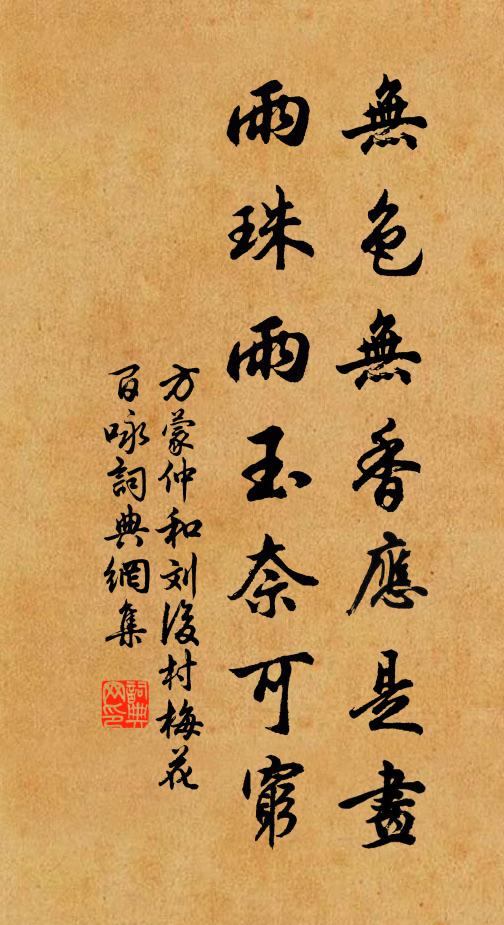 無色無香應是畫
雨珠雨玉奈可窮
方蒙仲和刘後村梅花
百咏詞典網集
詞典网印